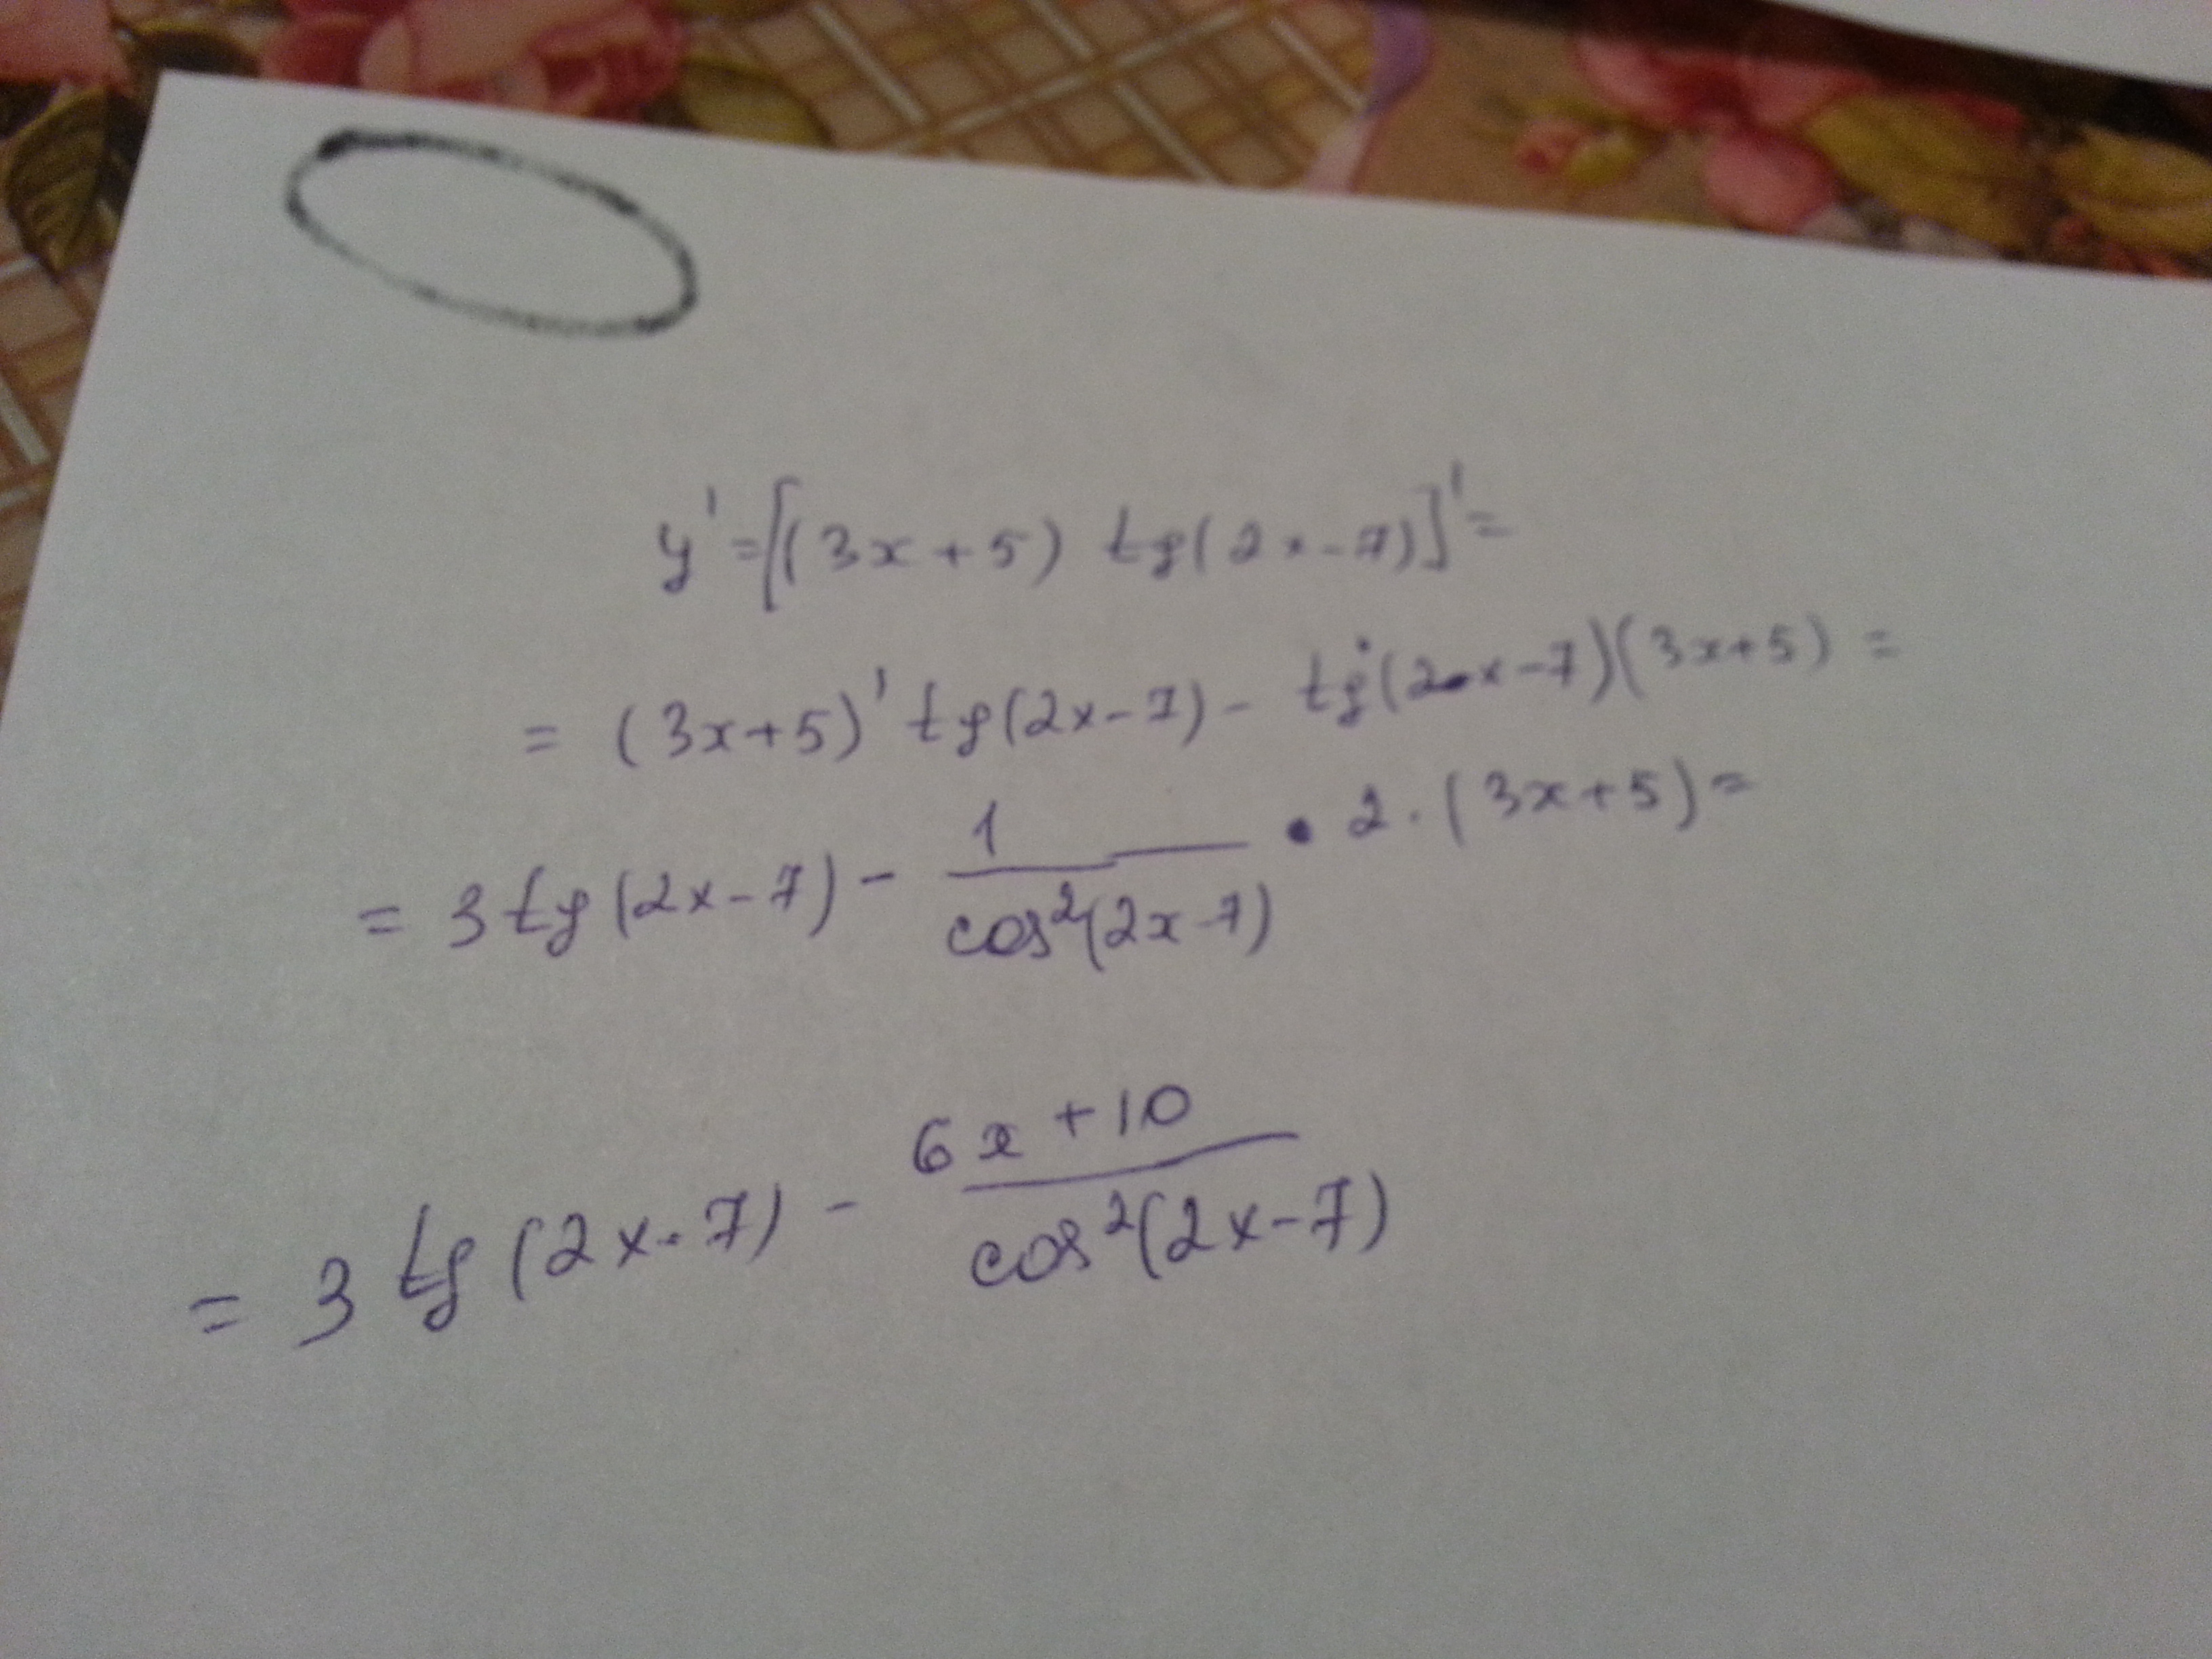 y' = [(3x+5) tg(2x-7)]' =
= (3x+5)' tg(2x-7) - tg'(2x-7)(3x+5) =
= 3 tg(2x-7) - 1/cos²(2x-7) • 2 · (3x+5) =
= 3 tg(2x-7) - (6x+10)/cos²(2x-7)